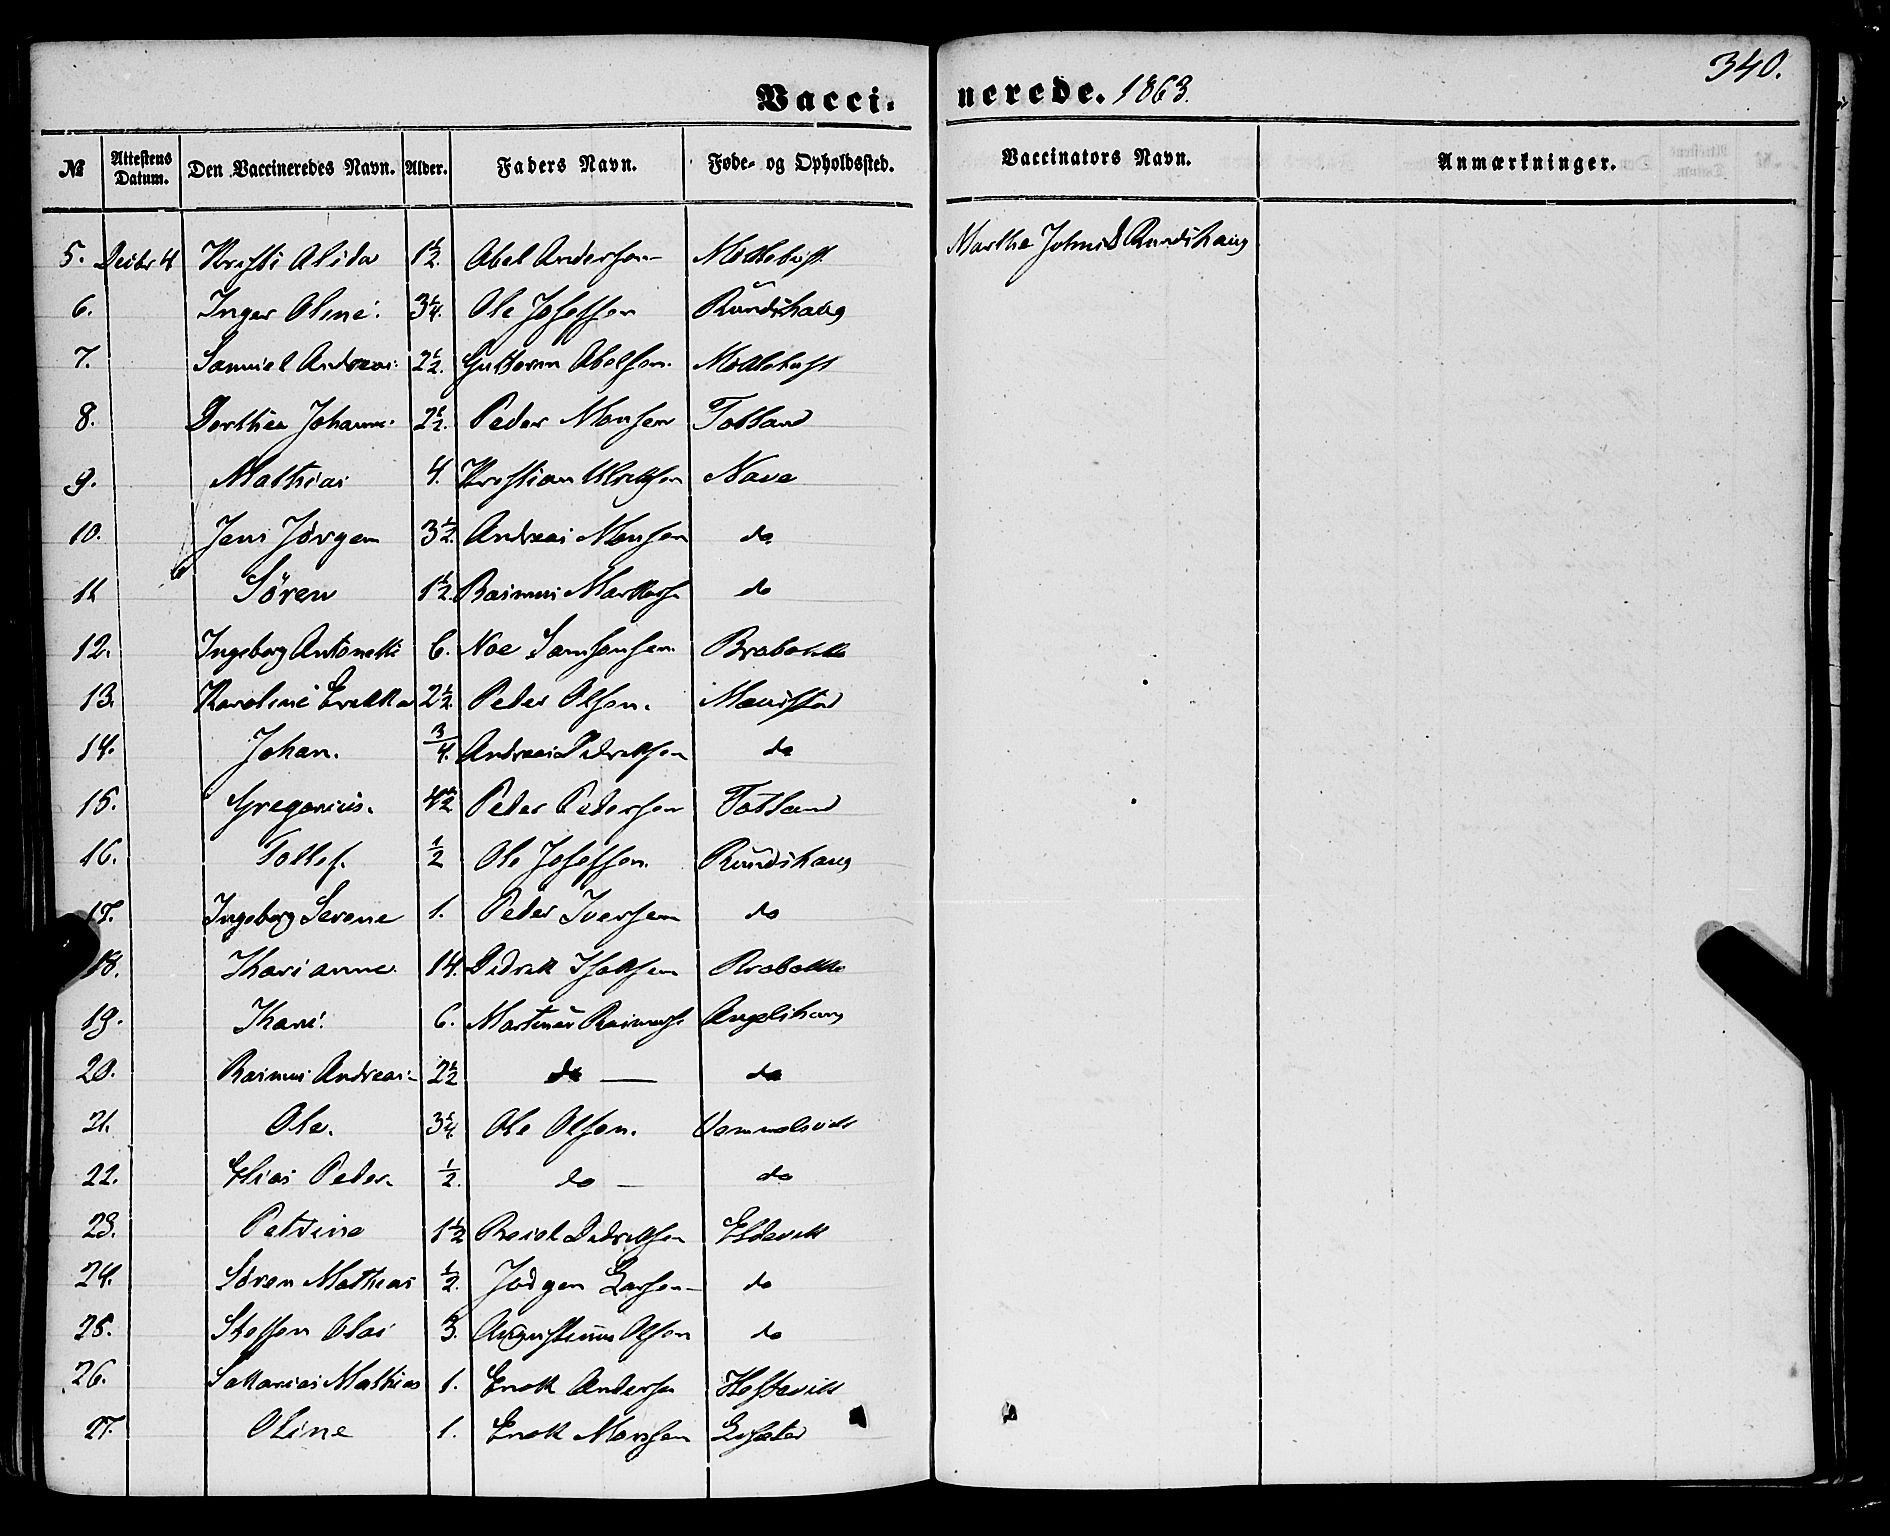 340.
Vacci-
nerede. 1863.
№ Attestens Datum. Den Vaccineredes Navn. Alder. Faders Navn. Føde- og Opholdssted. Vaccinators Navn. Anmærkninger.
5. Decbr 4 Kristi Alida 1½ Abel Andersen Midtbust Marthe Johnsd Rundshaug
6. Inger Oline. 3¼. Ole Josefsen Rundshaug
7. Samuel Andreas. 2½. Guttorm Abelsen. Midtbust
8. Dorthea Johanne. 2½. Peder Monsen Totland
9. Mathias 4. Kristian Nave
10. Jens Jörgen 3½. Andreas Monsen do
11 Sören 1½. Rasmus do
12. Ingeborg Antonette 6. Noe Samsonsen
13. Karoline Erikka 2½. Peder Olsen. Maurstad
14. Johan. ¾. Andreas Didriksen do
15. Gregorius. 4½ Peder Pedersen Totland
16. Tollef. ½ Ole Josefsen. Rundshaug
17. Ingeborg Serene 1. Peder Iversen do
18. Karianne 14. Didrik Isaksen
19. Kari. 6. Martinus Rasmuss. Angelshaug
20. Rasmus Andreas 2½ do — do
21. Ole. 3¼. Ole Olsen. Vemmelsvik
22. Elias Peder. ½. do — do
23. Petrine 1½ Didriksen Eldevik
24. Sören Mathias ½. Jörgen Larsen do
25. Steffen Olai 3. Augustinus Olsen do
26. Sakarias Mathias 1. Enok Anders. Hestevik
27. Oline 1. Enok Monsen